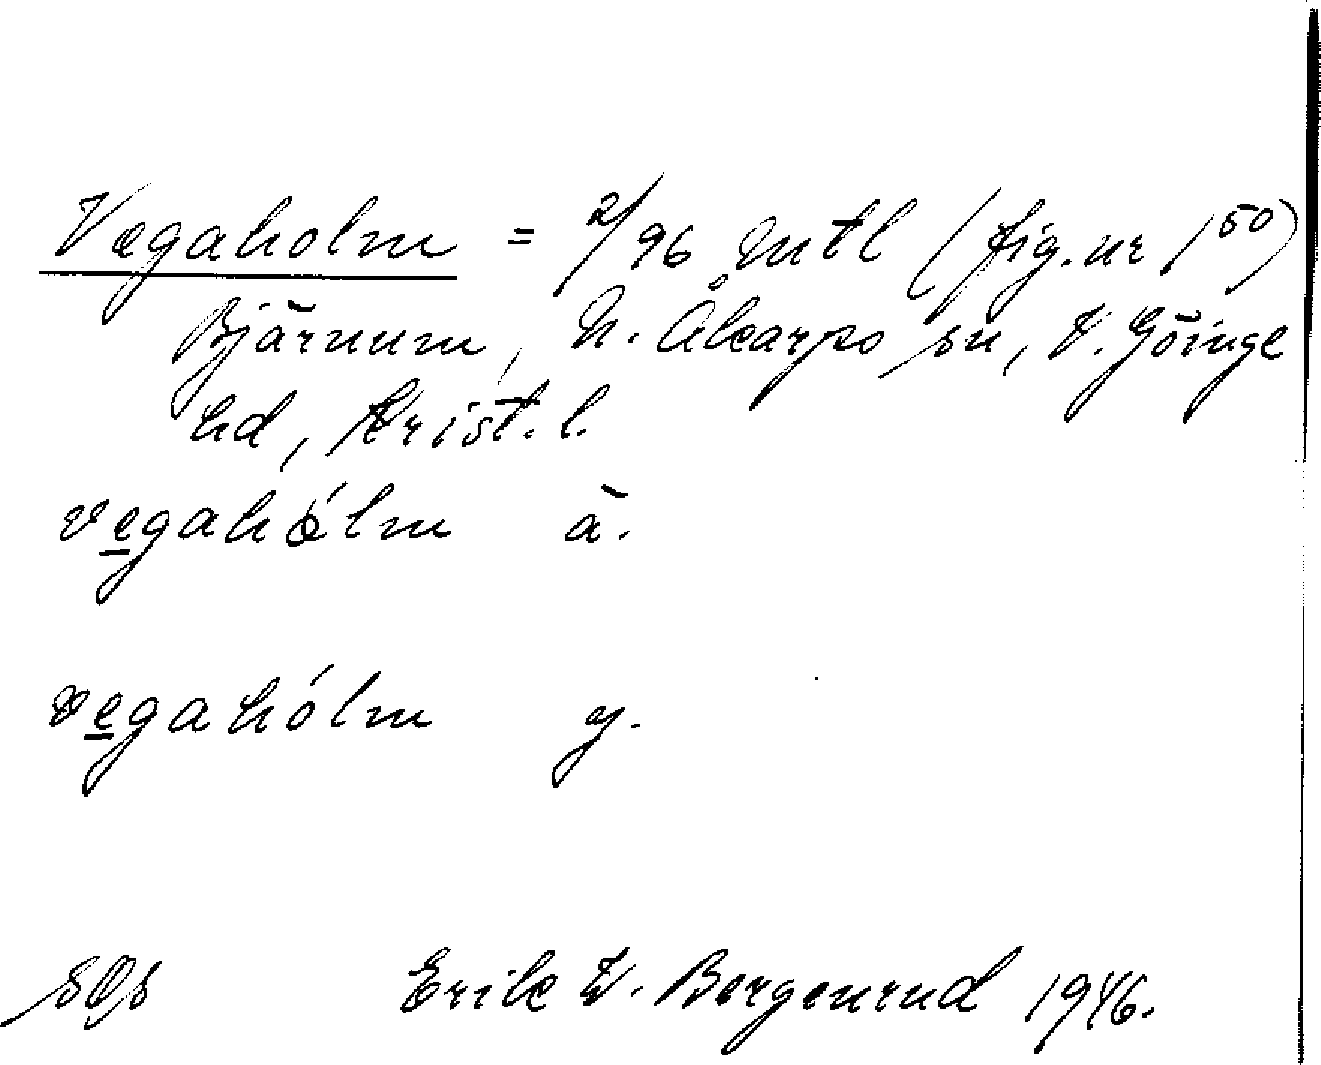 Vegaholm = 2/96 mtl (fig.nr 1⁵⁰)
Bjärnum, N. Åkarps sn, V. Göinge
hd, Krist. l.
vegahólm ä.
vegahólm y.
Erik W. Bergenrud 1946.